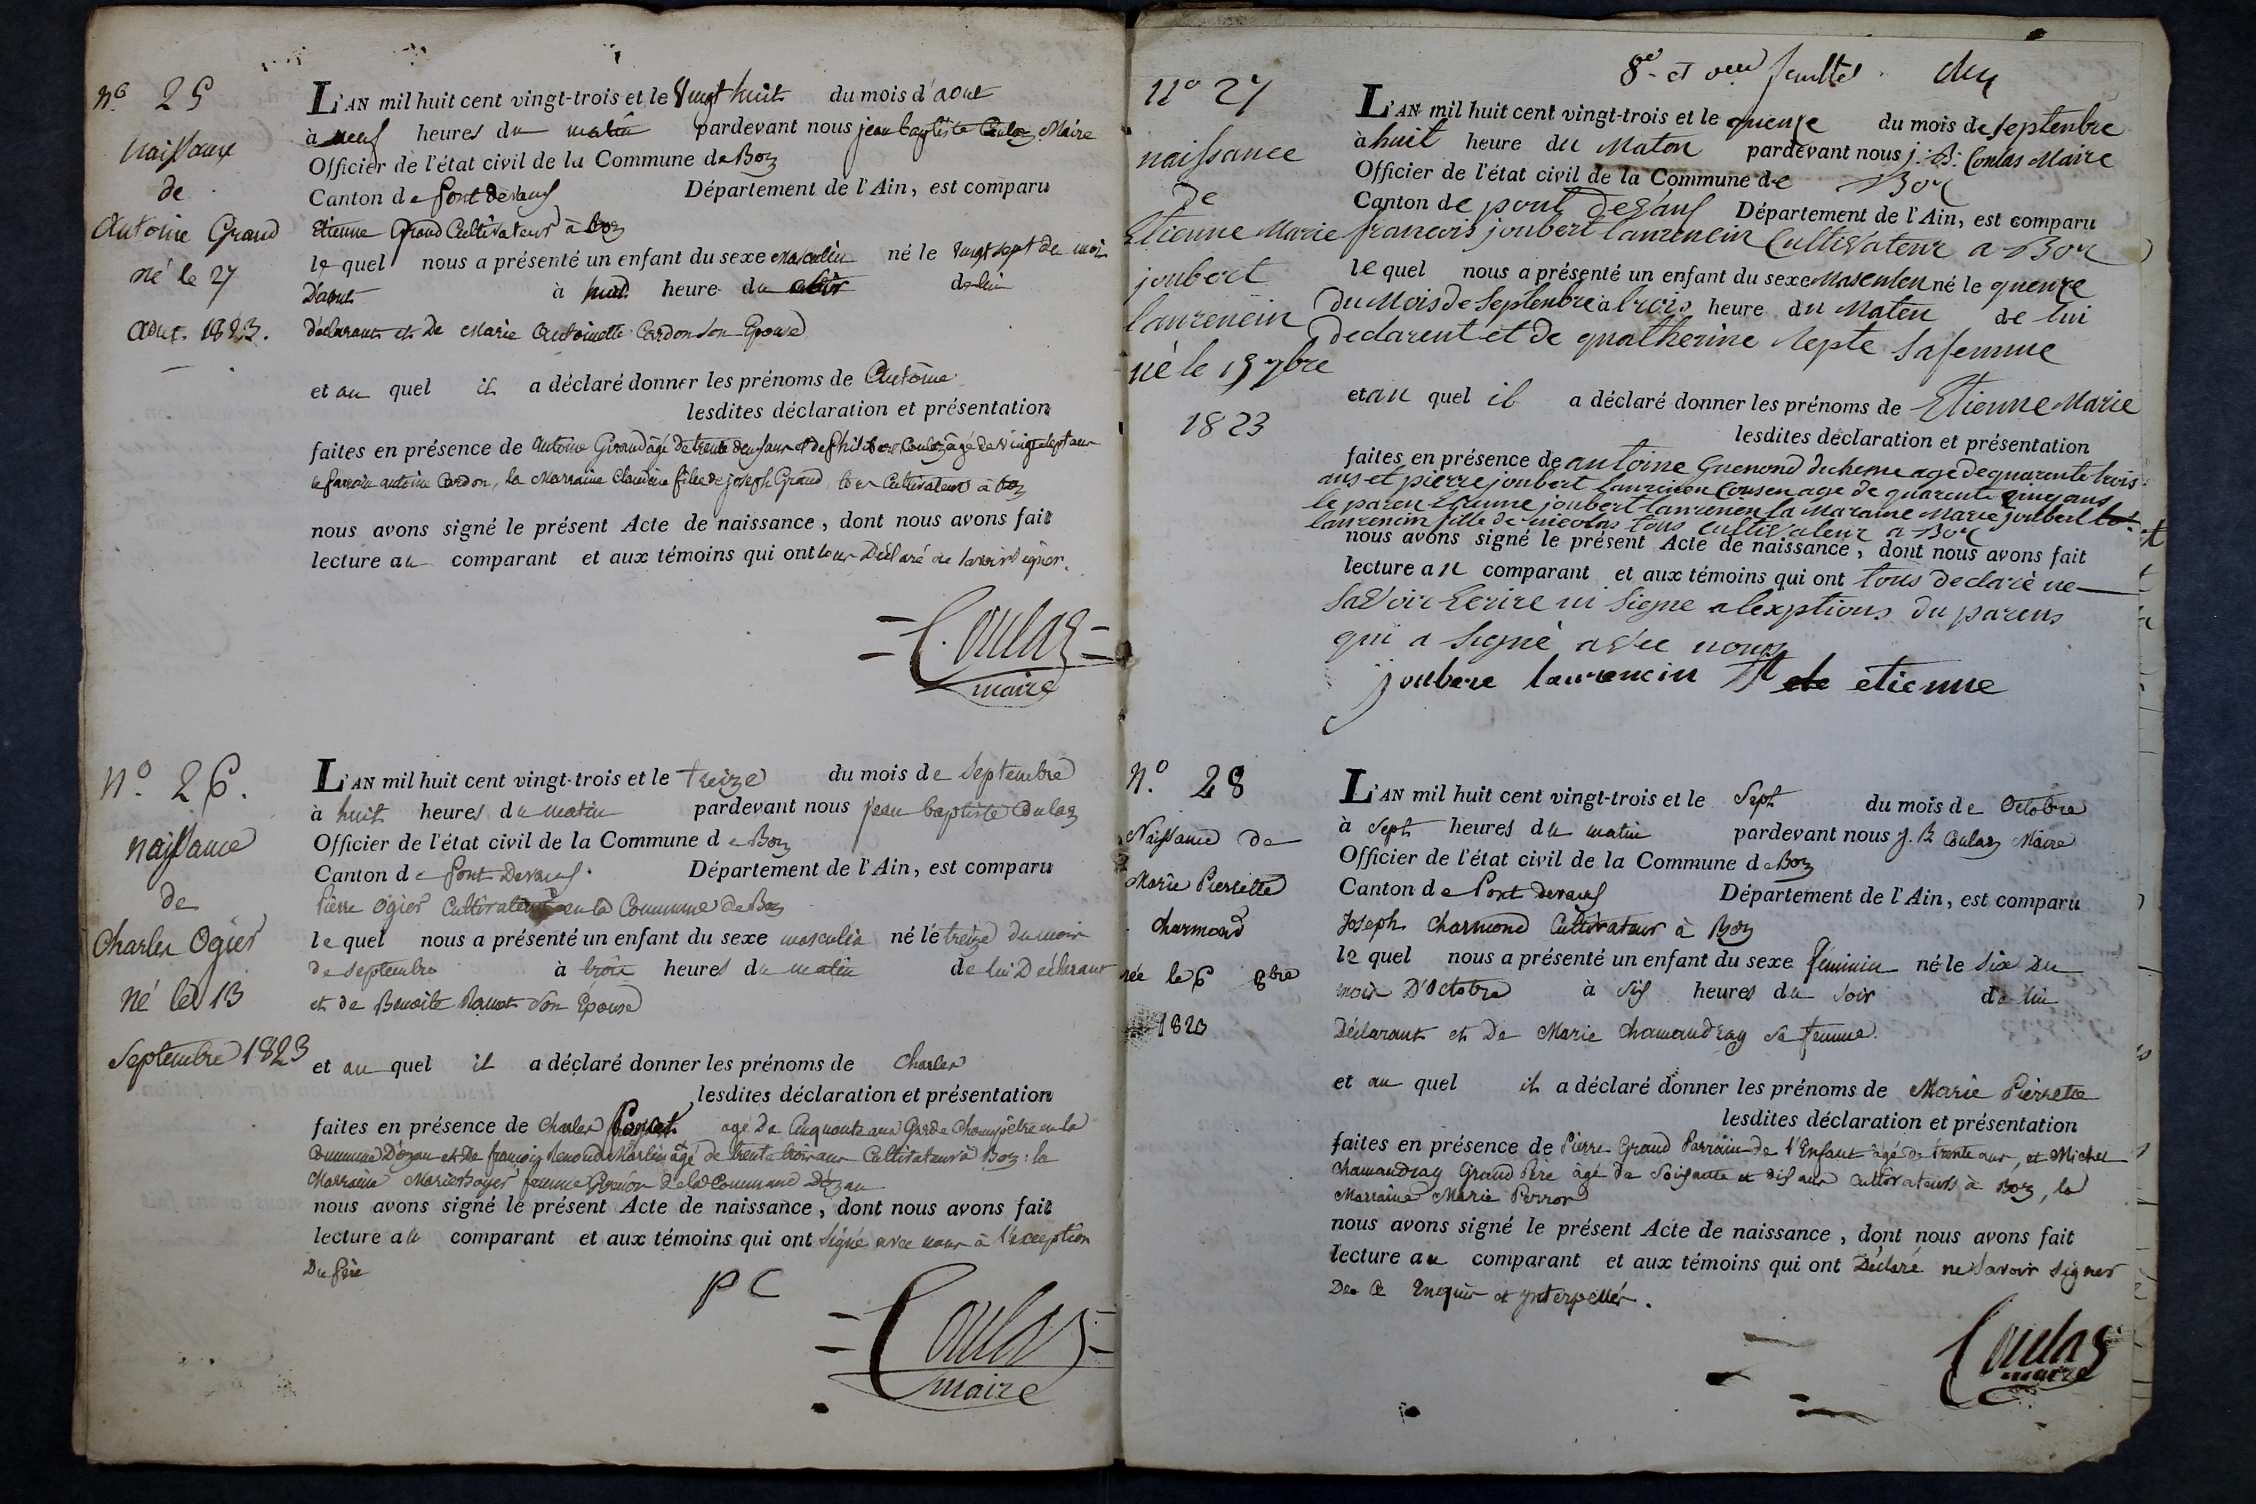 N.º 25
naissance
de
Antoine Grand
né le 27
aout 1823.
L'AN mil huit cent vingt-trois et le Vingt huit du mois d'aout
à neuf heures du matin pardevant nous jean baptiste Coulas Maire
Officier de l'état civil de la Commune de Boz
Canton de Pont devaux Département de l'Ain, est comparu
Etienne Grand Cultivateur à Boz
le quel nous a présenté un enfant du sexe masculin né le vingt sept du mois
D'aout à heure du de lui
déclarant et de Marie Antoinette Cardon son Epouse
et au quel il a déclaré donner les prénoms de Antoine
lesdites déclaration et présentation
faites en présence de Antoine Giraud âgé de trente deux ans et de Philibert Coulaz âgé de vingt sept ans
le parrain antoine Cardon, la Marraine Claudine fille de joseph Grand, tous Cultivateurs à Boz
nous avons signé le présent Acte de naissance, dont nous avons fait
lecture au comparant et aux témoins qui ont tous Déclaré ne savoir signer.
Coulas
maire
N.º 26.
naissance
de
Charles Ogier
né le 13
Septembre 1823
L'AN mil huit cent vingt-trois et le treize du mois de Septembre
à huit heures du matin pardevant nous jean baptiste Coulas
Officier de l'état civil de la Commune de Boz
Canton de Pont Devaux. Département de l'Ain, est comparu
Pierre Ogier Cultivateur en la Commune de Boz
le quel nous a présenté un enfant du sexe masculin né le treize du mois
de septembre à trois heures du matin de lui Déclarant
et de Benoite son Epouse
et au quel il a déclaré donner les prénoms de Charles
lesdites déclaration et présentation
faites en présence de Charles agé De Cinquante ans Garde Champêtre en la
Commune D'ozan et De françois Renoud Martin âgé de trente trois ans Cultivateur à Boz: la
Marraine Marie Boyer femme De la Commune D'ozan
nous avons signé le présent Acte de naissance, dont nous avons fait
lecture au comparant et aux témoins qui ont signé avec nous à l'exception
Du Père
P C
Coulas
maire
8e et feuillet
Nº 27
naissance
de
Etienne Marie
joubert
laurencin
né le 15 7bre
1823
L'AN mil huit cent vingt-trois et le quenze du mois de septenbre
à huit heure du Maton pardevant nous j: B: Coulas Maire
Officier de l'état civil de la Commune de Boz
Canton de pont devaux Département de l'Ain, est comparu
francois joubert laurencin Cultivateur a Boz
le quel nous a présenté un enfant du sexe Masculen né le quenze
du Mois de Septenbre à trois heure du Maten de lui
declarent et de quatherine sa femme
et au quel il a déclaré donner les prénoms de Etienne Marie
lesdites déclaration et présentation
faites en présence de antoine Guenond ducheme age de quarente trois
ans et pierre joubert laurencin Cousen age de quarente cinq ans
le paren Etienne joubert laurencen la Maraine Marie joubert
laurencin fille de nicolas tous cultivateur a Boz
nous avons signé le présent Acte de naissance, dont nous avons fait
lecture au comparant et aux témoins qui ont tous declaré ne
savoir Ecrire ni signe a lexptions du parens
qui a signé avec nous
joubere laurencin etienne
N.º 28
Naissance de
Marie Pierrette
Charmond
née le 6 8bre
1823
L'AN mil huit cent vingt-trois et le Sept du mois de Octobre
à Sept heures du matin pardevant nous J. B. Coulas Maire
Officier de l'état civil de la Commune de Boz
Canton de Pont devaux Département de l'Ain, est comparu
Joseph Charmond Cultivateur à Boz
le quel nous a présenté un enfant du sexe féminin né le Six Du
mois D'Octobre à Six heures du soir de lui
Déclarant et De Marie Chamandray sa femme.
et au quel il a déclaré donner les prénoms de Marie Pierrette
lesdites déclaration et présentation
faites en présence de Pierre Grand Parrain de l'Enfant âgé de trente ans, et Michel
Chamandray Grand Père âgé de Soixante et dix ans cultivateurs à Boz, la
Marraine Marie Perron
nous avons signé le présent Acte de naissance, dont nous avons fait
lecture au comparant et aux témoins qui ont Déclaré ne savoir signer
De Ce Enquis et ynterpellés.
Coulas
maire